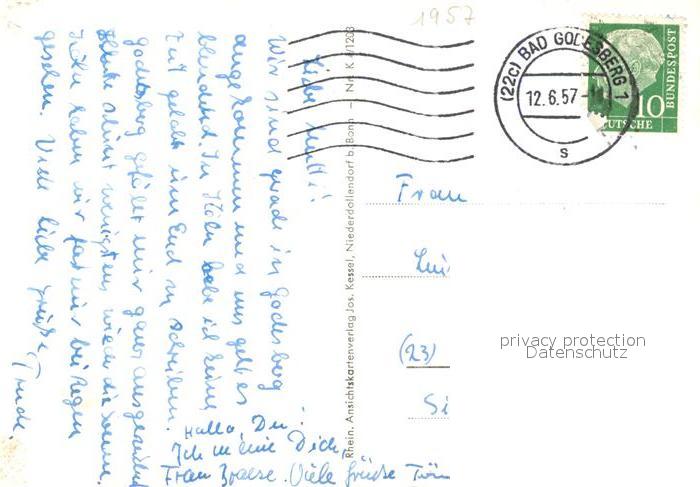 Liebe Mutti!
Wir sind grade in Godesberg
angekommen und uns geht es
blendend. In Köln habe ich keine
Zeit gehabt um Euch zu schreiben.
Godesberg gefällt mir ganz ausgezeichnet
Heute scheint wenigstens wieder die Sonne.
Köln haben wir fast nur bei Regen
gesehen. Viele liebe Grüße,
Trude.
Hallo, Du!
Ich meine Dich,
Frau Viele Grüße
Rhein. Ansichtskartenverlag Jos. Kessel, Niederdollendorf b. Bonn — Nr. K 4/1203
1957
(22c) BAD GODESBERG 1
12.6.57
s
10
DEUTSCHE
BUNDESPOST
Frau
(23)
privacy protection
Datenschutz